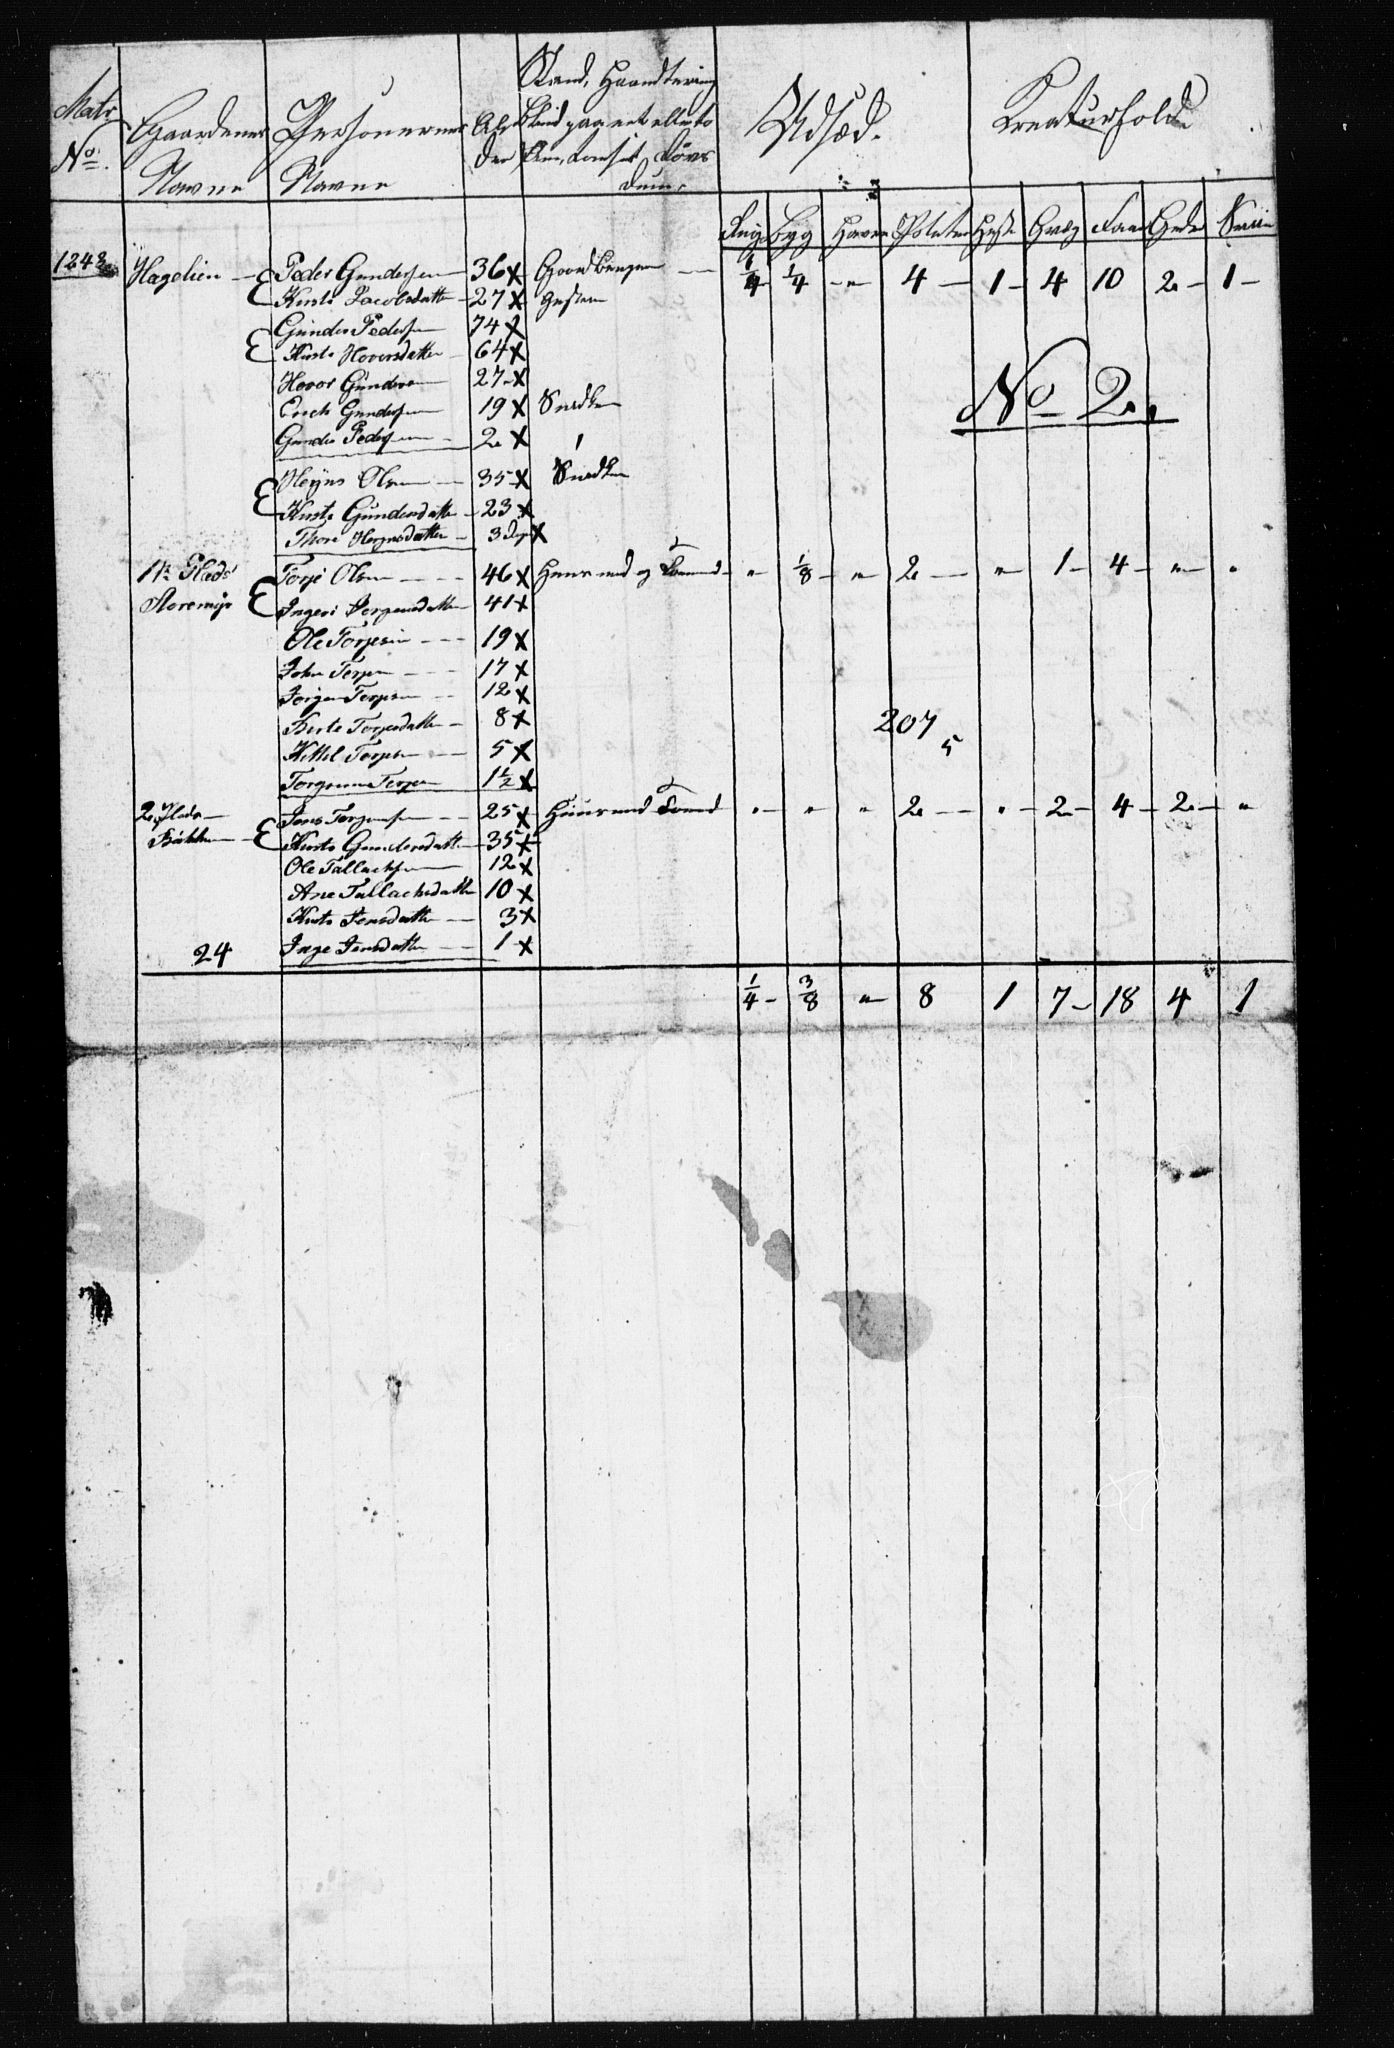 Matr No. Gaardenes Navne Personernes Navne Alder Stand, Haandtering Blind paa et eller to Øine, Døvs Udsæd. Kreaturhold
Rug Byg Havre Poteter Heste Qvæg Faar Geder Sviin
1248 Hagelien Peder Gundersen 36 x Gaardbruger 1/4 1/4 - " - 4 - 1 - 4 10 2 - 1 -
Kirsti Jacobsdatter 27 x
Gunder Pedersen 74 x
Kirsti Hovorsdatter 64 x
Hovor Gundersen 27 x
No 2.
Erich Gundersen 19 x Snedker
Gunder Pedersen 2 x
Herjus Olsen 35 x Snedker
Kirsti Gundersdatter 23 x
Thore Herjusdatter 3 x
1ste Plads Torje Olsen 46 x Huusmand og " 1/8 - " 2 - " 1 - 4 - " - "
Storemyr Ingeri Jorgensdatter 41 x
Ole Torjesen 19 x
John Torjesen 17 x
Jorgen Torjesen 12 x
Berte Torjesdatter 8 x
207
Kittel Torjesen 5 x
5
Torgrim Torjesen 1 1/2 x
2 Plads Jens Torjussen 25 x Huusmand " " " 2 - " - 2 - 4 - 2 - "
Bakken Kirsti Gundersdatter 35 x
Ole Tallachsen 12 x
Ane Tallachsdatter 10 x
Kirsti Jensdatter 3 x
24 Inge Jensdatter 1 x
1/4 - 3/8 " 8 1 7 - 18 4 1